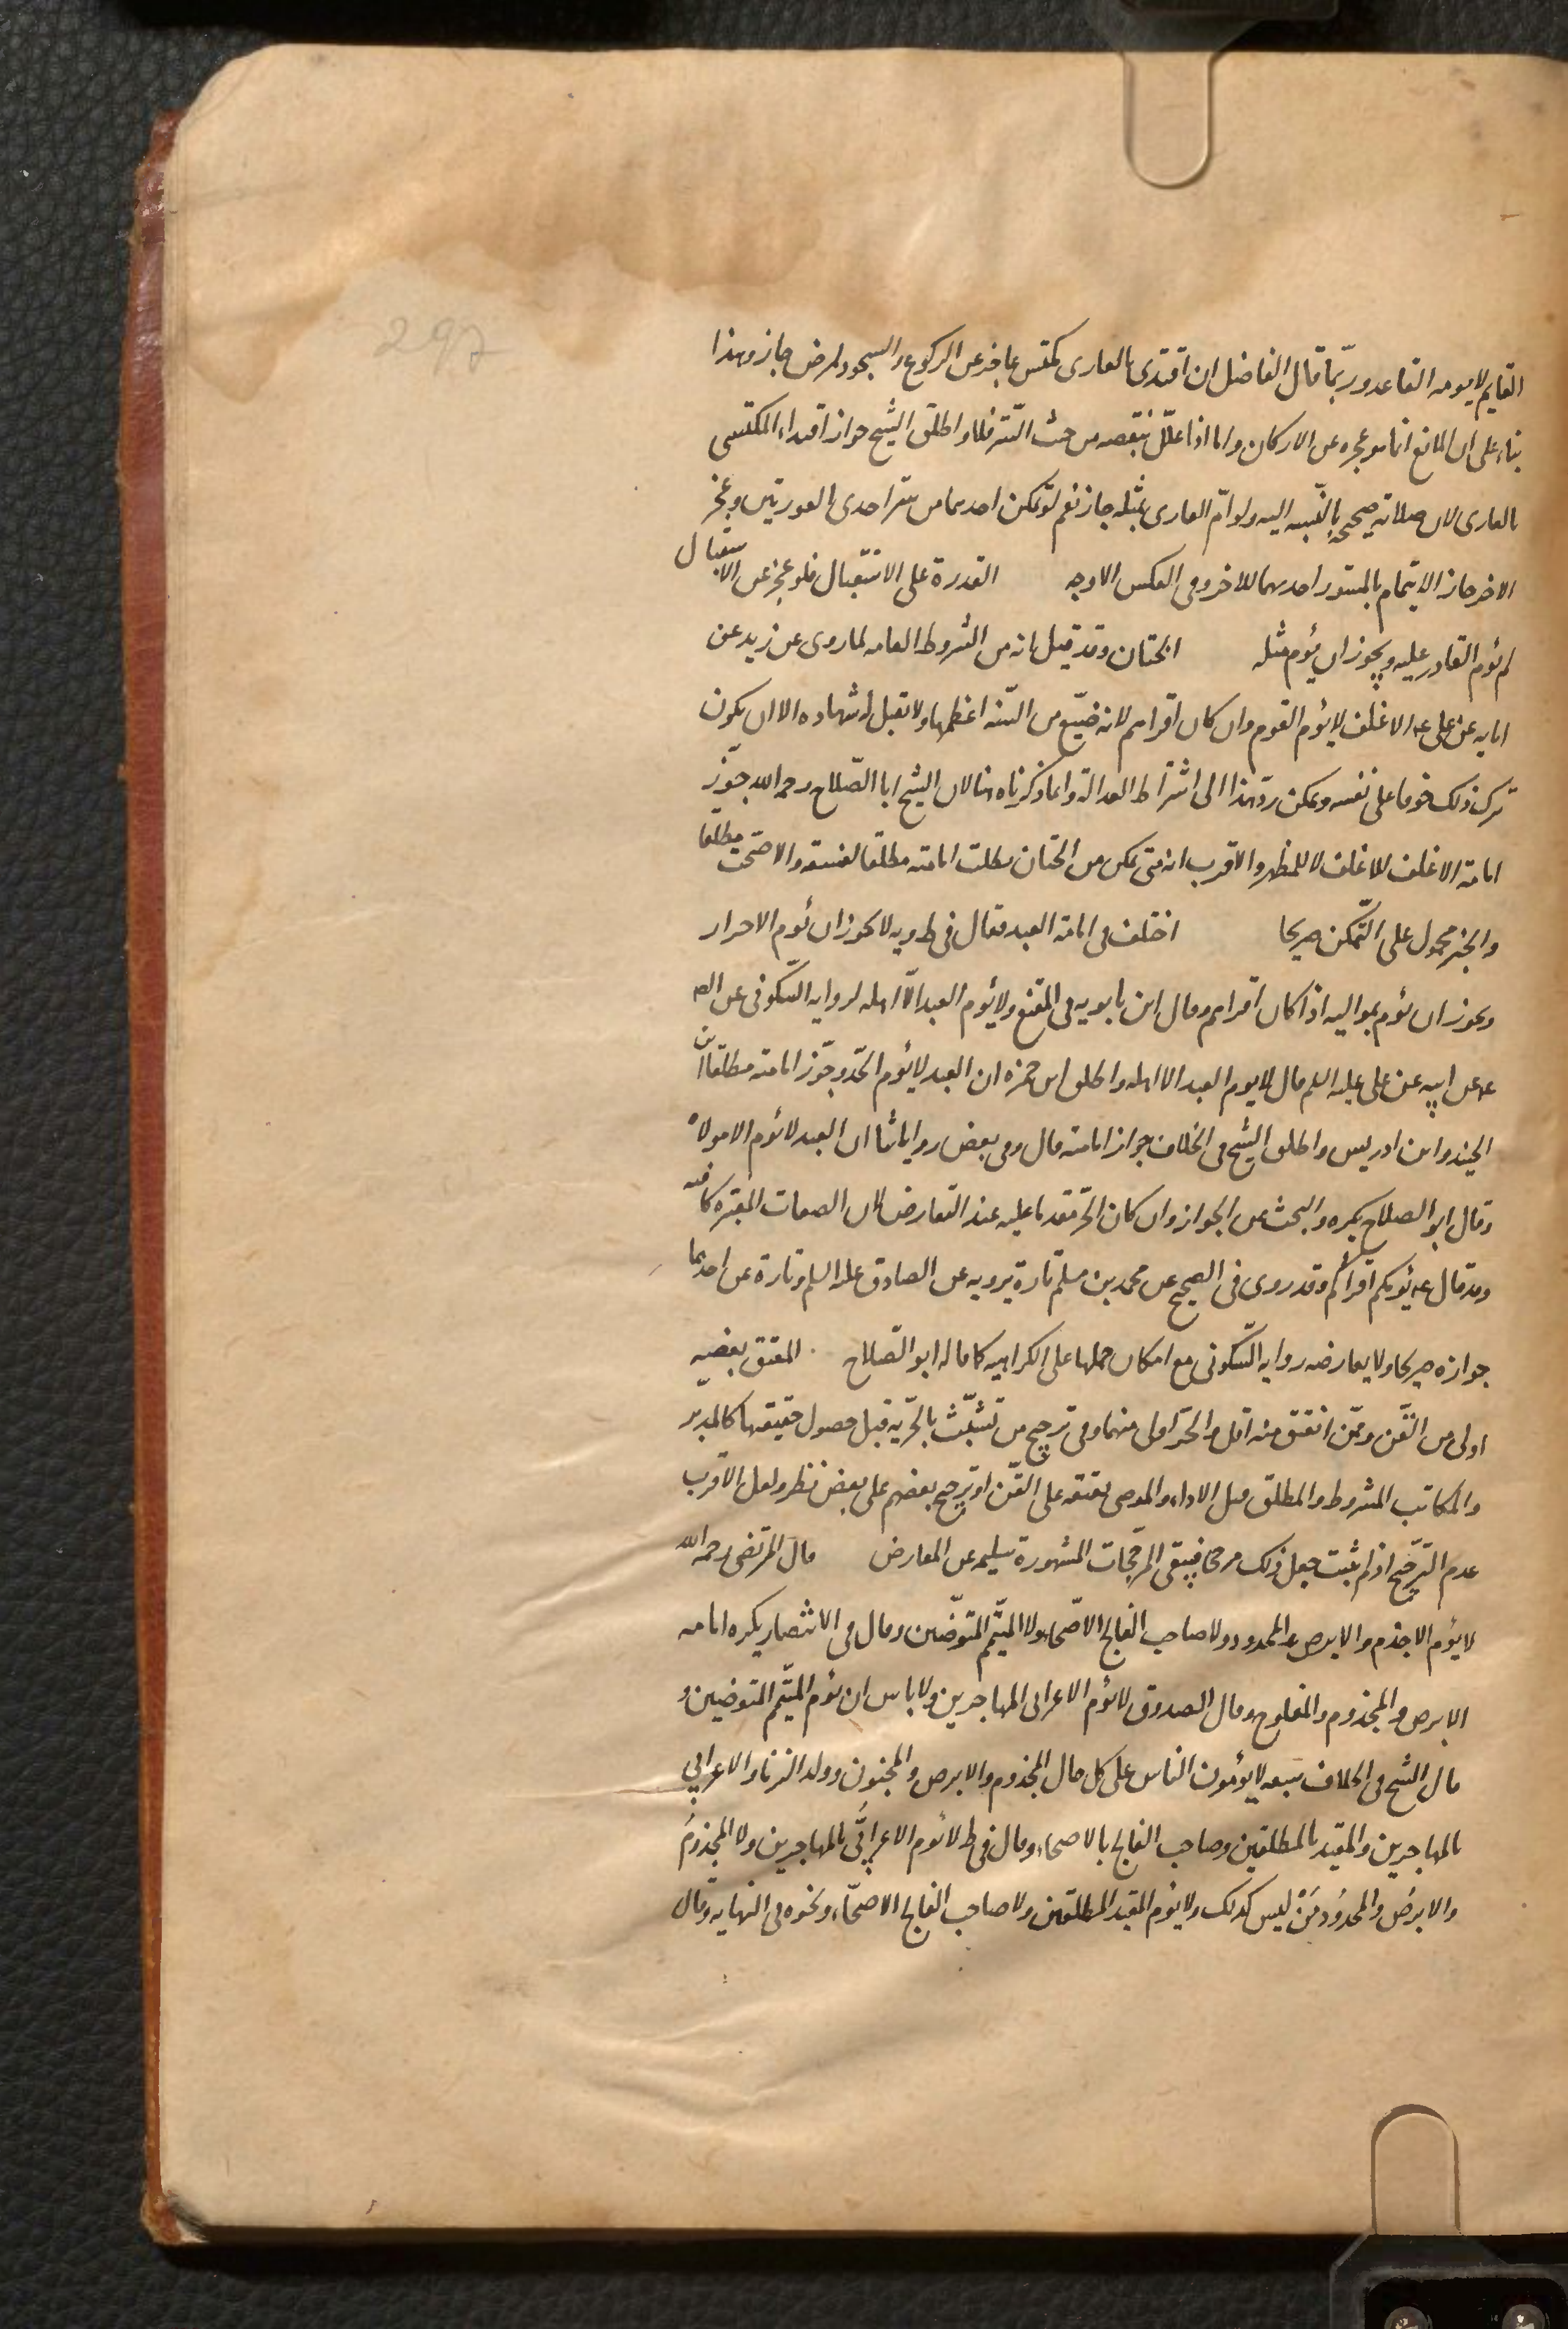 297
القايم لا يومه القاعد وربّما قال الفاضل ان اقتدى بالعارى مكتس عاجز عن الركوع والسجود لمرض جاز وهذا
بناء على ان المانع انما هو عجزه عن الاركان واما اذا علّل بنقصه من حيث الستر فلا واطلق الشيخ جواز اقتداء المكتسى
بالعارى لان صلاته صحيحة بالنسبه اليه ولو امّ العارى بمثله جاز نعم لو تمكن احدهما من ستر احدى العورتين وعجز
الاخر جاز الايتمام بالمستور احدهما للاخر وفى العكس الاوجه القدرة على الاستقبال فلو عجز عن الاستقبال
لم يؤم القادر عليه ويجوز ان يؤم مثله الختان وقد قيل انه من الشروط العامه لما روى عن زيد عن
ابايه عن على عه الاغلف لا يؤم القوم وان كان اقراهم لانه ضيّع من السّنه اعظمها ولا تقبل له شهاده الا ان يكون
ترك ذلك خوفا على نفسه ويمكن ردّ هذا الى اشتراط العدالة وانما ذكرناه هنا لان الشيخ ابا الصّلاح رحمه الله جوّز
امامة الاغلف للاغلف لا للمطهر والاقرب انه متى تمكن من الختان بطلت امامته مطلقا لفسقه والا صحّت مطلقا
والخبر محمول على التّمكن صريحا اختلف فى امامة العبد فقال فى ط ويه لا يجوز ان يؤم الاحرار
ويجوز ان يؤم بمواليه اذا كان اقراهم وقال ابن بابويه فى المقنع ولا يؤم العبد الّا اهله لروايه السّكونى عن الص
عه عن ابيه عن على عليه السلم قال لا يوم العبد الا اهله واطلق ابن حمزه ان العبد لا يؤم الحّر وجوّز امامته مطلقا ابن
الجنيد وابن ادريس واطلق الشيخ فى الخلاف جواز امامته قال وفى بعض رواياتنا ان العبد لا يؤم الا مولاه
وقال ابو الصلاح يكره والبحث عن الجواز وان كان الحّر مقدما عليه عند التعارض لان الصفات المعتبره كافيه
وقد قال عه يؤمكم اقراكم وقد روى فى الصحيح عن محمد بن مسلم تارة يرويه عن الصادق عليه السلم وتارة عن احدهما
جوازه صريحا ولا يعارضه روايه السّكونى مع امكان حملها على الكراهيه كما قاله ابو الصّلاح المعتق بعضه
اولى من القّن وممّن انعتق منه اقل والحّر اولى منهما وفى ترجيح من تشبّث بالحرّيه قبل حصول حقيقتها كالمدبر
والمكاتب المشروط والمطلق قبل الاداء والموصى بعتقه على القّن او ترجيح بعضهم على بعض نظر ولعل الاقرب
عدم الترّجيح اذ لم يثبت جعل ذلك مرجحا فيبقى المرجّحات المشهورة سليمه عن المعارض قال المرتضى رحمه الله
لا يؤم الاجذم والابرص والمحدود ولا صاحب الفالج الاصّحاء ولا المتيّمم المتوضّين وقال فى الانتصار يكره امامه
الابرص والمجذوم والمفلوج وقال الصدوق لا يؤم الاعرابى المهاجرين ولا باس ان يؤم المتيّمم المتوضيين و
قال الشيخ فى الخلاف سبعه لا يؤمون الناس على كل حال المجذوم والابرص والمجنون وولد الزنا والاعرابى
بالمهاجرين والمقيد بالمطلقين وصاحب الفالج بالاصحاء وقال فى ط لا يؤم الاعرابىُّ بالمهاجرين ولا المجذومُ
والابرصُ والمحدُودُ مَنْ ليس كذلك ولا يؤم المقيد المطلقين ولا صاحب الفالج الاصحّاء ونحوه فى النهايه وقال